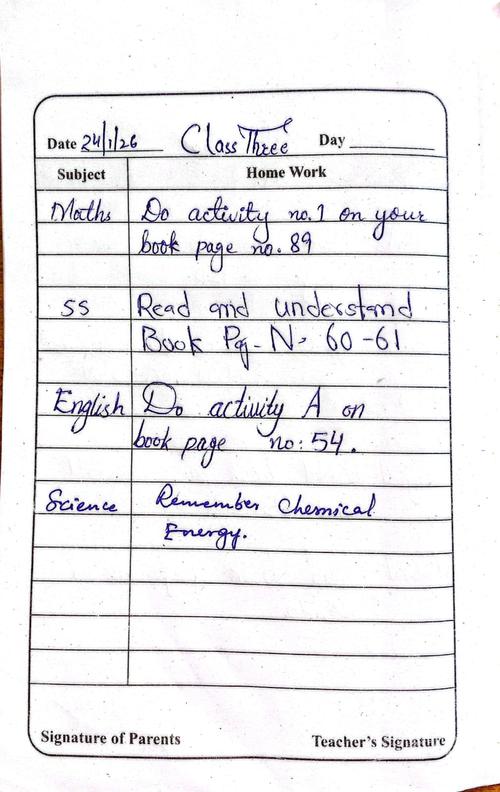 Date 24/1/26 Class Three Day
Subject Home Work
Maths Do activity no. 1 on your
book page no. 89
SS Read and understand
Book Pg- N- 60-61
English Do activity A on
book page no: 54.
Science Remember Chemical
Energy.
Signature of Parents Teacher's Signature